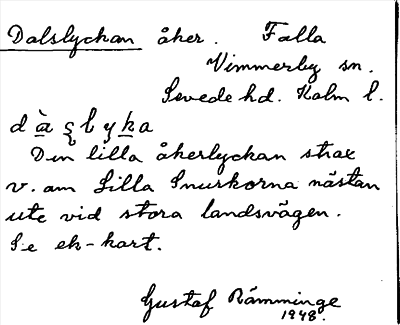 Dalslyckan åker. Falla
Vimmerby sn.
Sevede hd. Kalm l.
dàslyka
Den lilla åkerlyckan strax
v. om Lilla Snurkorna nästan
ute vid stora landsvägen.
Se ek-kart.
Gustaf Rämminge
1948.